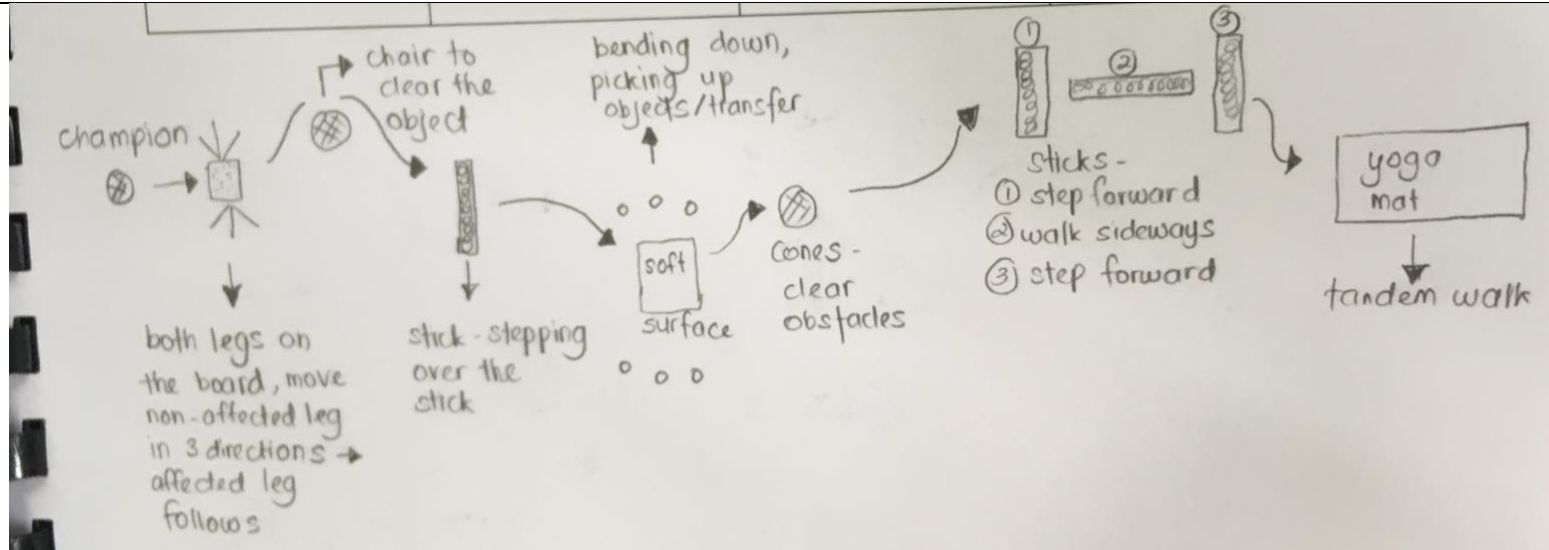 champion
both legs on
the board, move
non-affected leg
in 3 directions →
affected leg
follows
chair to
clear the
object
stick - stepping
over the
stick
bending down,
picking up
objects/transfer
soft
surface
Cones -
clear
obstacles
① ② ③
sticks -
① step forward
② walk sideways
③ step forward
yoga
mat
tandem walk